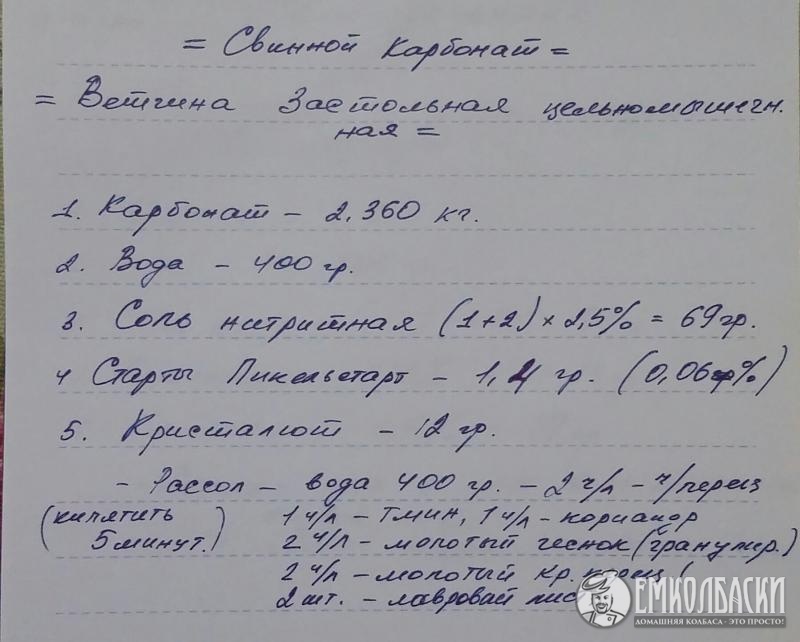 = Свинной Карбонат =
= Ветчина Застольная цельномышечн.
ная =
1. Карбонат – 2,360 кг.
2. Вода – 400 гр.
3. Соль нитритная (1+2) × 2,5% = 69 гр.
4 Старты Пикельстарт – 1,4 гр. (0,06%)
5. Кристалют – 12 гр.
- Рассол – вода 400 гр. – 2 ч/л – ч/перец
(кипятить 1 ч/л – тмин, 1 ч/л – кориандр
5 минут.) 2 ч/л – молотый чеснок (гранулир.)
2 ч/л – молотый кр. перец (
2 шт. – лавровай лис
ЕМКОЛБАСКИ
ДОМАШНЯЯ КОЛБАСА - ЭТО ПРОСТО!